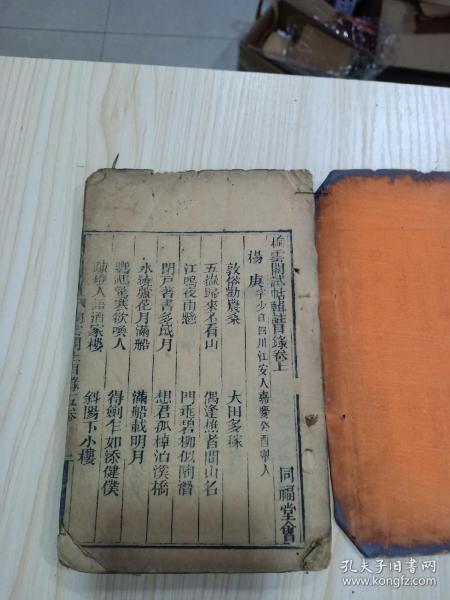 雲閣試帖輯註目錄卷上
同福堂
楊庚字少白四川江安人嘉慶癸酉舉人
敦俗勸農桑 大田多稼
五嶽歸來不看山 偶逢樵者問山名
江鳴夜雨懸 門垂碧柳似陶潛
閉戶著書多歲月 想君孤棹泊溪橋
水繞蘆花月滿船 滿船載明月
鴉起驚寒欲喚人 得劍乍如添健僕
人語酒家樓 斜陽下小樓
孔夫子旧书网
www.kongfz.com